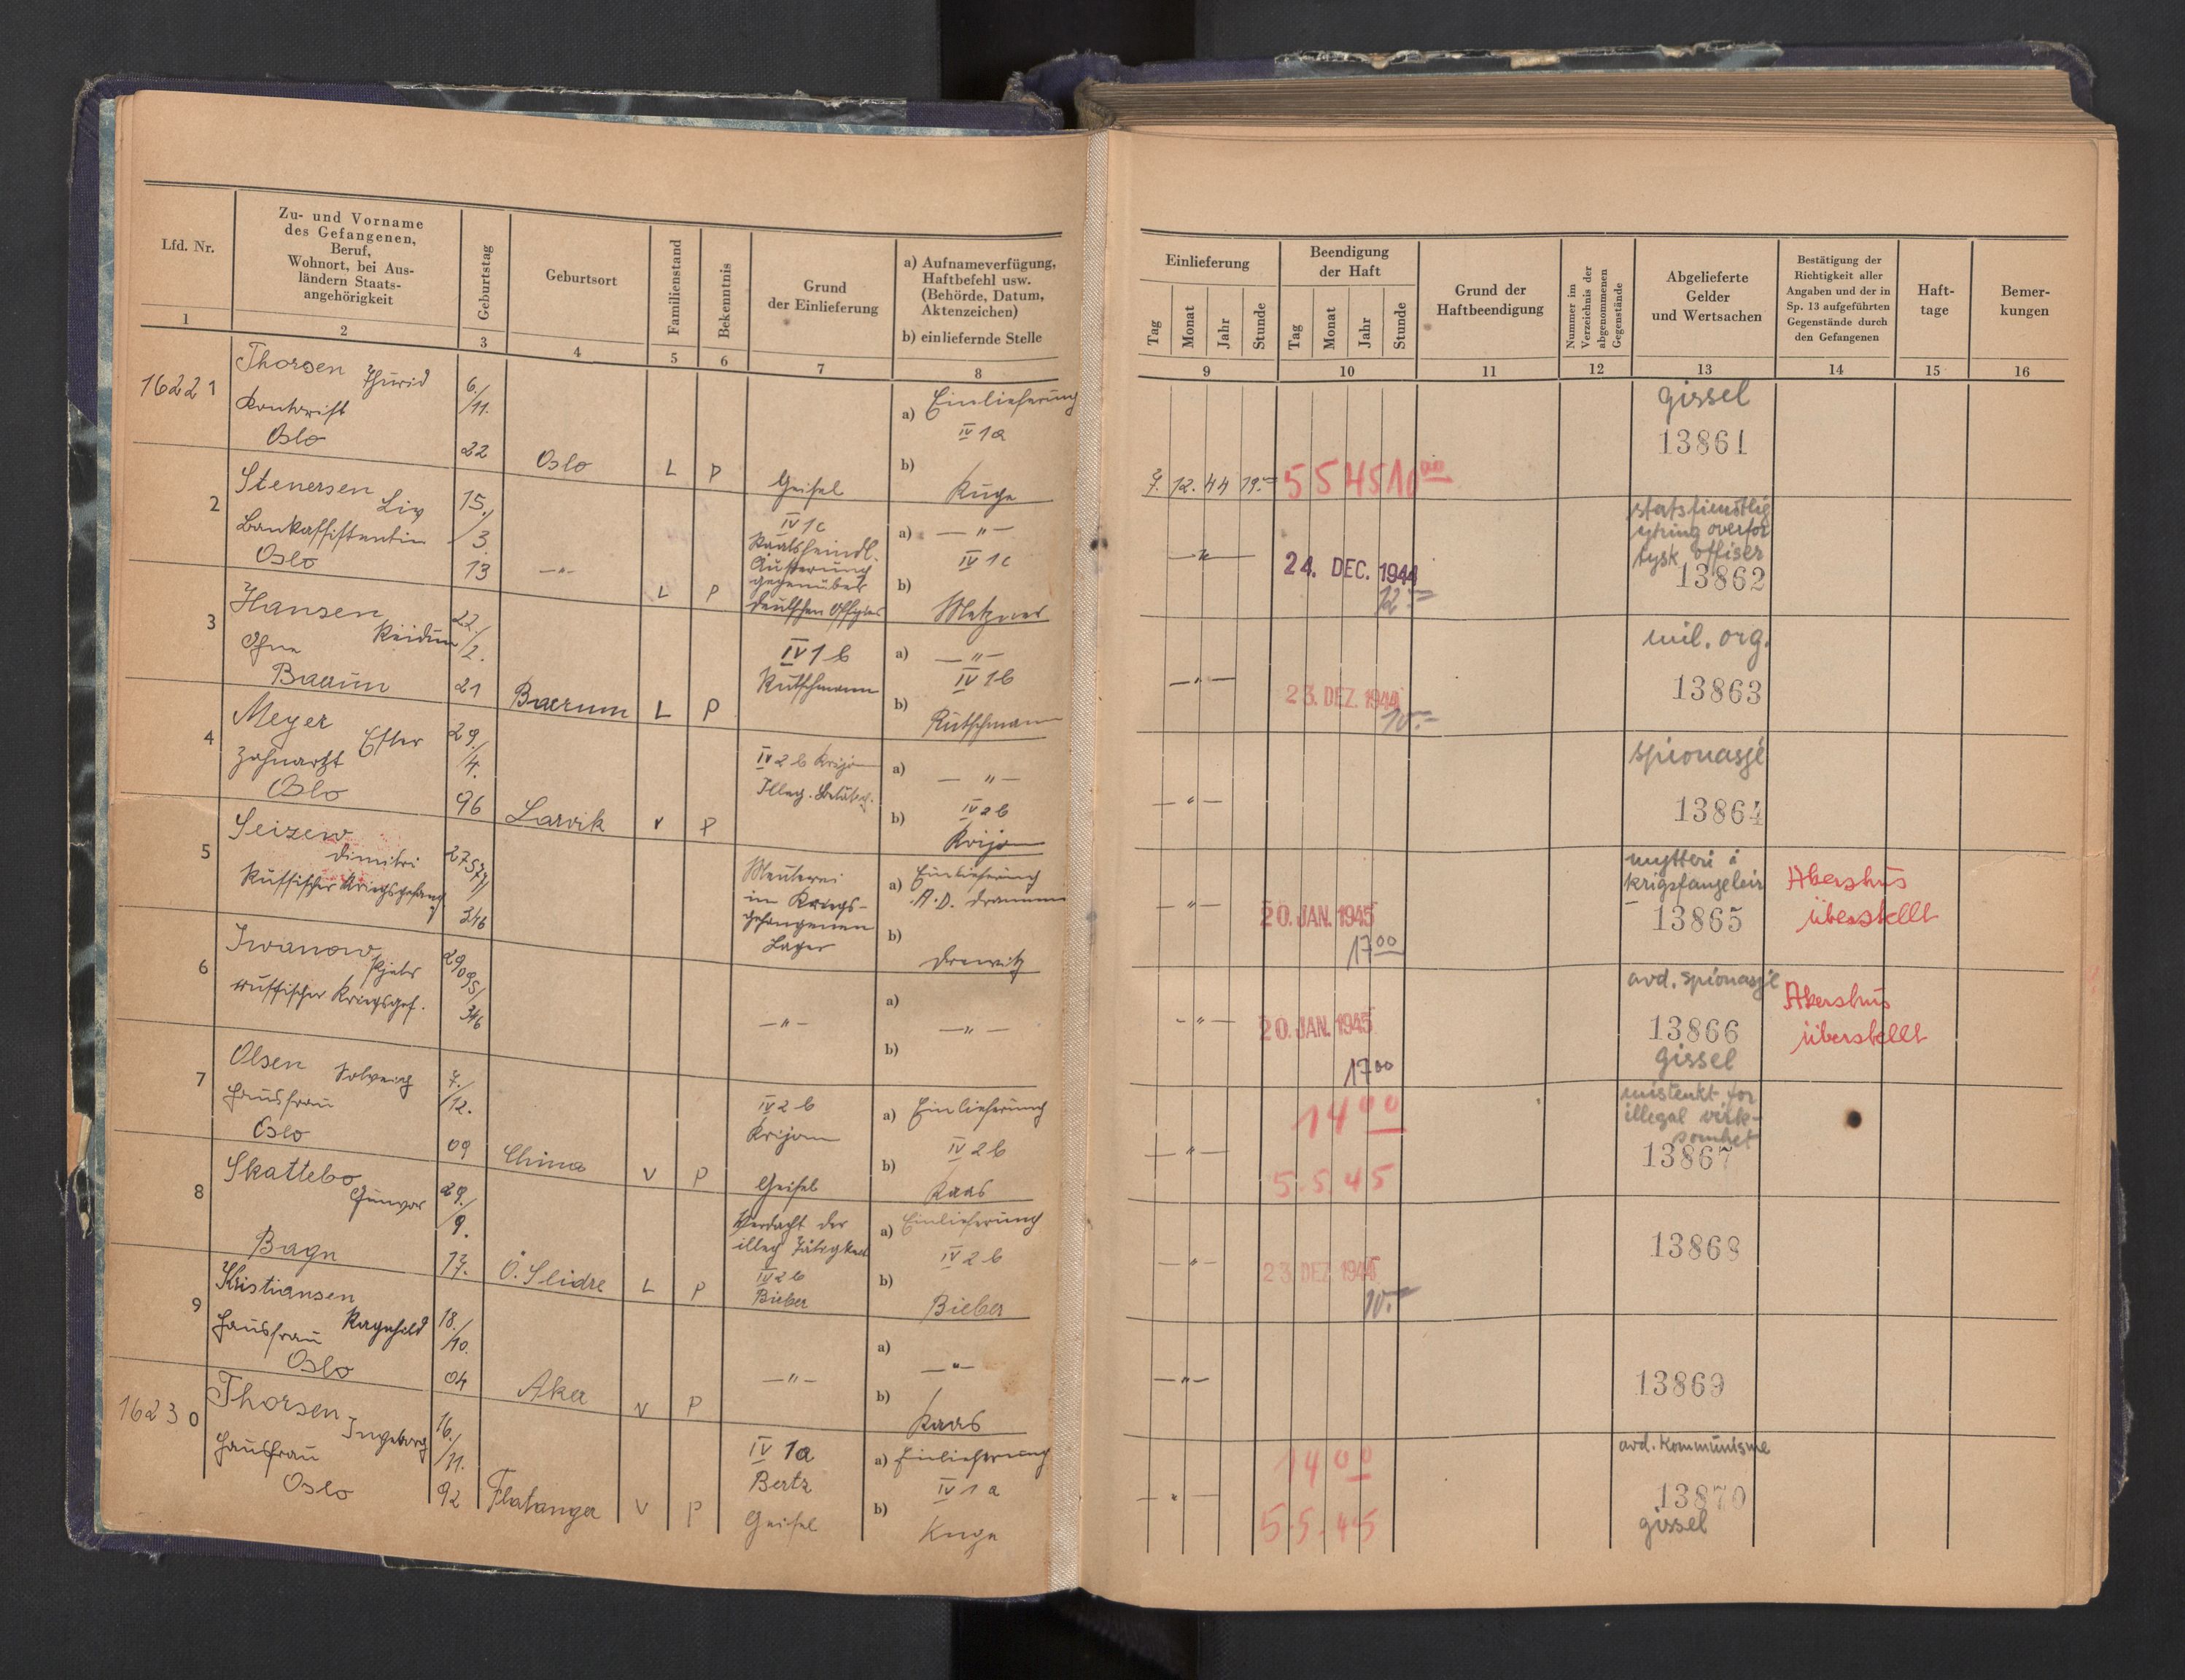 Lfd. Nr.
1
Zu- und Vorname
des Gefangenen,
Beruf,
Wohnort, bei Aus-
ländern Staats-
angehörigkeit
2
Geburtstag
3
Geburtsort
4
Familienstand
5
Bekenntnis
6
Grund
der Einlieferung
7
a) Aufnameverfügung,
Haftbefehl usw.
(Behörde, Datum,
Aktenzeichen)
b) einliefernde Stelle
8
Einlieferung
Tag
Monat
Jahr
Stunde
9
Beendigung
der Haft
Tag
Monat
Jahr
Stunde
10
Grund der
Haftbeendigung
11
Nummer im
Verzeichnis der
abgenommenen
Gegenstände
12
Abgelieferte
Gelder
und Wertsachen
13
Bestätigung der
Richtigkeit aller
Angaben und der in
Sp. 13 aufgeführten
Gegenstände durch
den Gefangenen
14
Haft-
tage
15
Bemer-
kungen
16
16221
Thorsen
Thurid
Kontorist
Oslo
6/11.
22
Oslo
L
P
Geisel
a) Einlieferung
IV 1a
b)
Kuge
7. 12. 44 19.–
5 5 45 10 00
gissel
13861
2
Stenersen
Liv
Bankassistentin
Oslo
15./3.
13
—"—
L
P
IV 1c
Staatsfeindl.
Äusserung
gegenüber
deutschen Offizier
a) —"—
IV 1c
b)
Metzner
—"—
24. DEC. 1944
12.–
statsfiendtlig
ytring overfor
tysk offiser
13862
3
Hansen
Reidun
Ohne
Baerum
22./2.
21
Baerum
L
P
IV 1 b
Rutschmann
a) —"—
IV 1b
b)
Rutschmann
—"—
23. DEZ. 1944
10.–
mil. org.
13863
4
Meyer
Ester
Zahnarzt
Oslo
29./4.
96
Larvik
V
P
IV 2 b Krijom
Illeg. Betätig.
a) —"—
IV 2b
b)
Krijom
—"—
spionasje
13864
5
Seizew
Dimitri
Russischer Kriegsgefang
27577/
346
Meuterei
im Kriegs-
gefangenen
Lager
a) Einlieferung
A.D. Drammen
b)
Drewitz
—"—
20. JAN. 1945
17 00
mytteri i
krigsfangeleir
13865
Akershus
überstellt
6
Iwanow
Pjotr
russischer Kriegsgef.
29095/
346
—"—
a)
—"—
b)
—"—
20. JAN. 1945
17 00
avd. spionasje
13866
gissel
Akershus
überstellt
7
Olsen Solveig
Hausfrau
Oslo
7./12.
09
China
V
P
IV 2 b
Krijom
Geisel
a) Einlieferung
IV 2b
b)
Kaas
—"—
14 00
5.5.45
mistenkt for
illegal virk-
somhet
13867
8
Skattebo
Gunvor
Bagn
29./9.
17.
Ö. Slidre
L
P
Verdacht der
illeg Tätigkeit
IV 2 b
Bieber
a) Einlieferung
IV 2 b
b)
Bieber
—"—
23. DEZ. 1944
10.–
13868
9
Kristiansen
Ragnhild
Hausfrau
Oslo
18./10.
04
Aker
V
P
—"—
a)
—"—
b)
Kaas
—"—
13869
16230
Thorsen
Ingeborg
Hausfrau
Oslo
16./11.
92
Flatanger
V
P
IV 1a
Bertz
Geisel
a) Einlieferung
IV 1 a
b)
Kuge
—"—
14 00
5.5.45
avd. kommunisme
13870
gissel